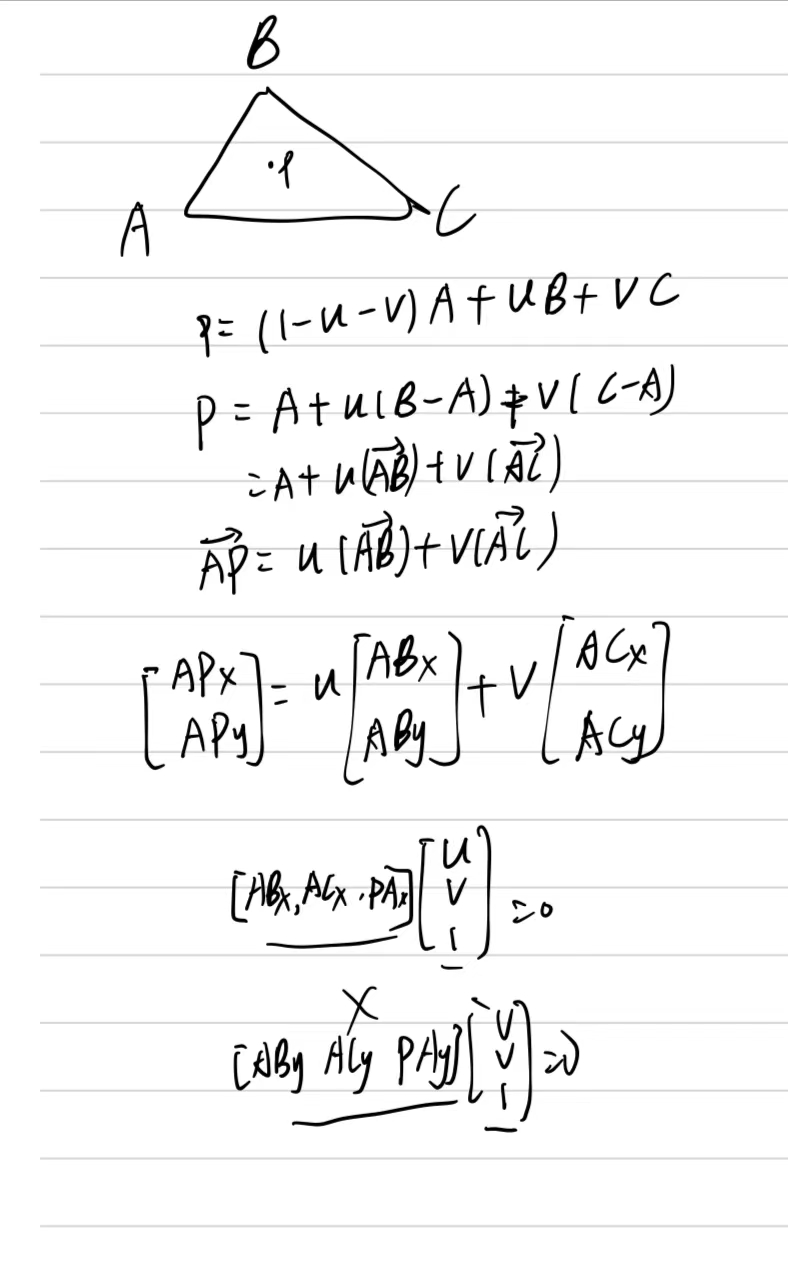 B
.P
A
C
P = (1-u-v) A + uB + vC
P = A + u(B-A) + v(C-A)
= A + u(AB) + v(AC)
AP = u(AB) + v(AC)
[APx APy] = u [ABx ABy] + v [ACx ACy]
[ABx, ACx, PAx] [u v 1] = 0
X
[ABy ACy PAy] [u v 1] = 0